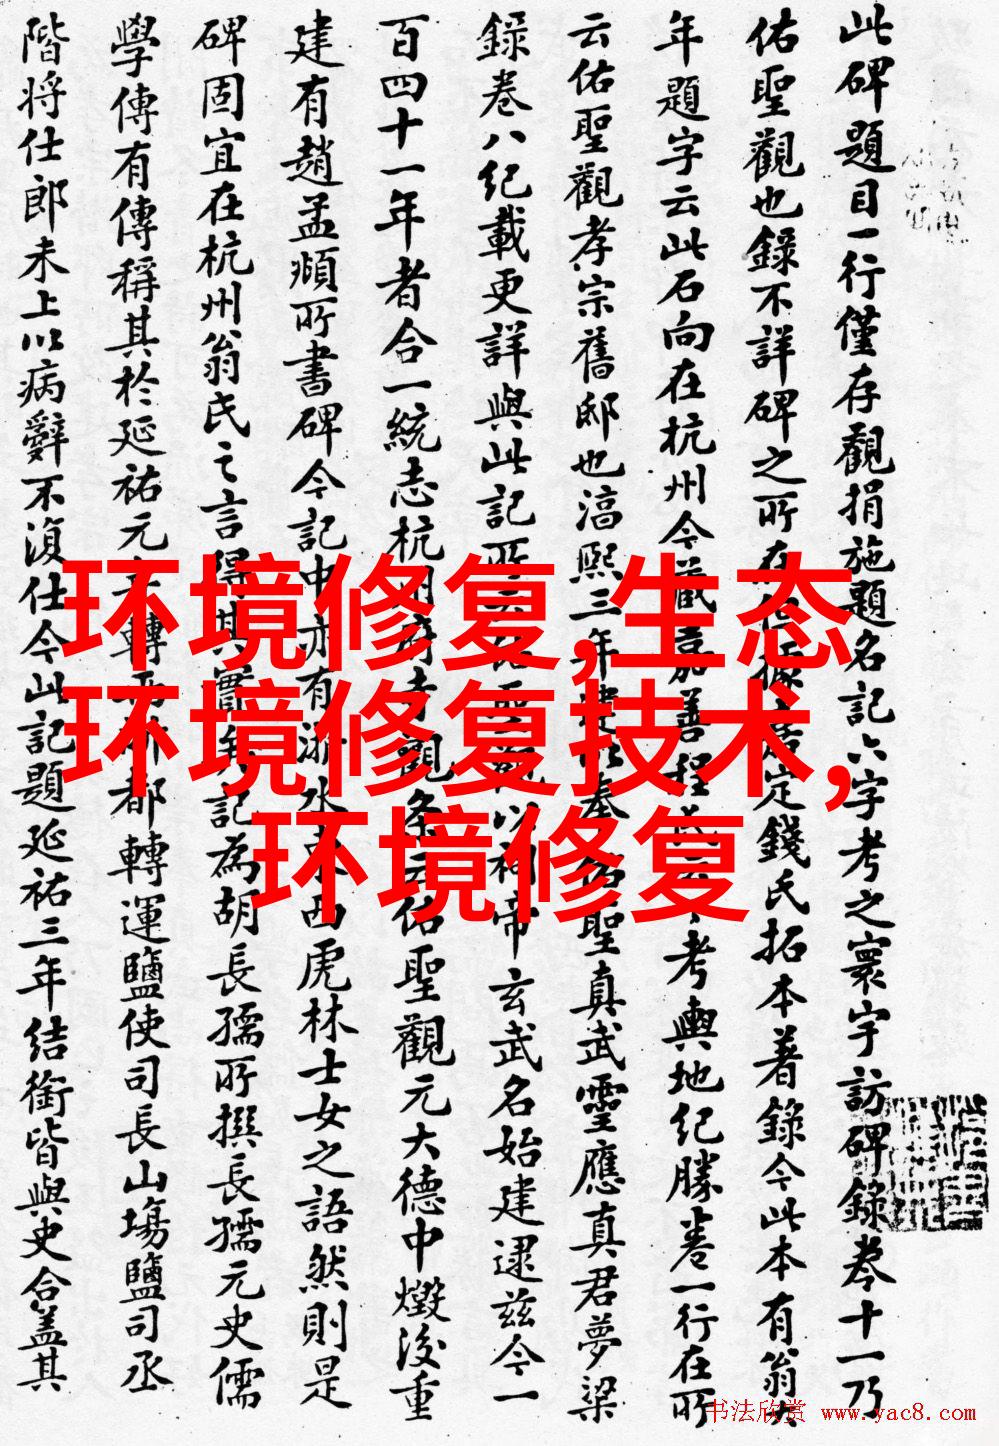 此碑題目一行僅存觀捐施題名記六字考之寰宇訪碑錄卷十一乃
佑聖觀也錄不詳碑之所在定錢氏拓本著錄今此本有翁
年題字云此石向在杭州今藏嘉善程氏考輿地紀勝卷一行在所
云佑聖觀孝宗舊邸也淳熙三年建以奉佑聖真武靈應真君夢梁
錄卷八紀載更詳與此記所以祠帝玄武名始建逮茲今一
百四十一年者合一統志杭州府寺觀条云佑聖觀元大德中燬後重
建有趙孟頫所書碑今記中亦有浙水西虎林士女之語然則是
碑固宜在杭州翁氏之言得其實矣記為胡長孺所撰長孺元史儒
學傳有傳稱其於延祐元年轉都轉運鹽使司長山場鹽司丞
階將仕郎未上以病辭不復仕今此記題延祐三年結銜皆與史合蓋其
环境修复,生态
环境修复技术,
环境修复
书法欣赏 www.yac8.com